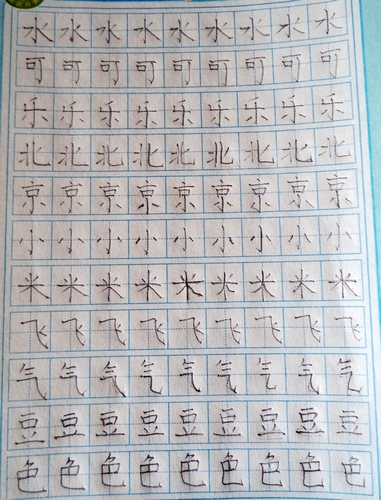 水水水水水水水水水
可可可可可可可可可
乐乐乐乐乐乐乐乐乐
北北北北北北北北北
京京京京京京京京京
小小小小小小小小小
米米米米米米米米米
飞飞飞飞飞飞飞飞飞
气气气气气气气气气
豆豆豆豆豆豆豆豆豆
色色色色色色色色色